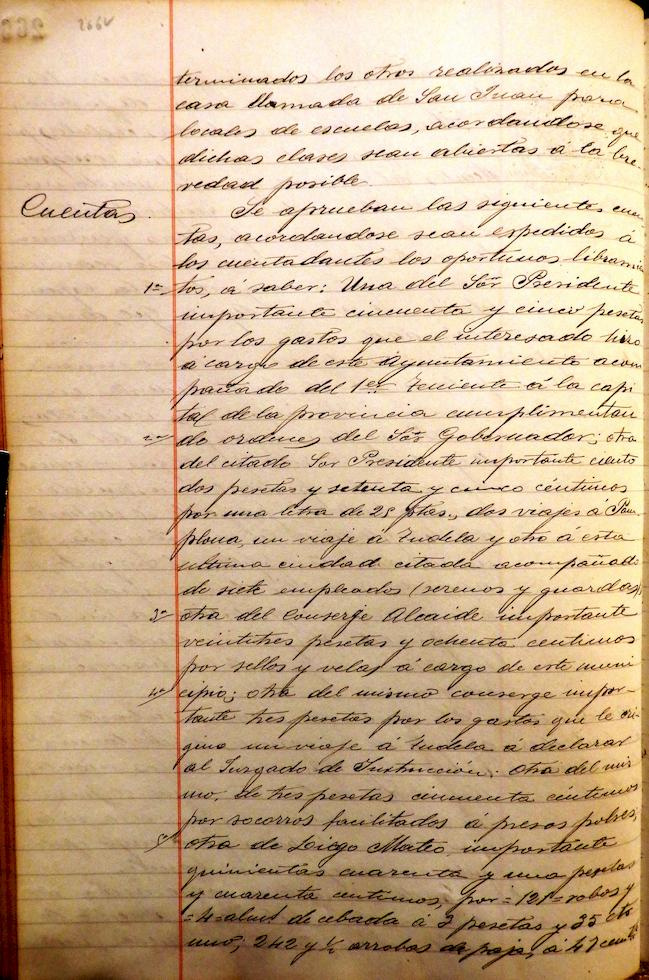 266v
terminados los otros realizados en la
casa llamada de San Juan para
locales de escuelas, acordandose que
dichas clases sean abiertas á la bre-
vedad posible.
Cuentas. Se aprueban las siguientes cuen-
tas, acordandose sean expedidos á
los cuentadantes los oportunos libramien
1ª tos, á saber: Una del Sor Presidente
importante cincuenta y cinco pesetas
por los gastos que el interesado hizo
á cargo de este Ayuntamiento acom
pañado del 1er Teniente á la capi
tal de la provincia cumplimentan
2ª do ordenes del Sor Gobernador; otra
del citado Sor Presidente importante ciento
dos pesetas y setenta y cinco céntimos
por una letra de 25 ptas., dos viajes á Pam
plona, un viaje á Tudela y otro á esta
ultima ciudad citada acompañado
de siete empleados (serenos y guardas)
3ª otra del Conserje Alcaide importante
veintitres pesetas y ochenta centimos
por sellos y velas á cargo de este muni
4ª cipio; otra del mismo conserge impor-
tante tres pesetas por los gastos que le ori
gino un viaje á Tudela á declarar
al Juzgado de Instrucción: Otra del mis
mo, de tres pesetas cincuenta céntimos
por socorros facilitados á presos pobres;
5ª otra de Diego Mateo importante
quinientas cuarenta y una pesetas
y cuarenta centimos, por =121= robos y
=4= almd de cebada á 3 pesetas y 35 cts
uno; 242 y ½ arrobas de paja, á 47 cents